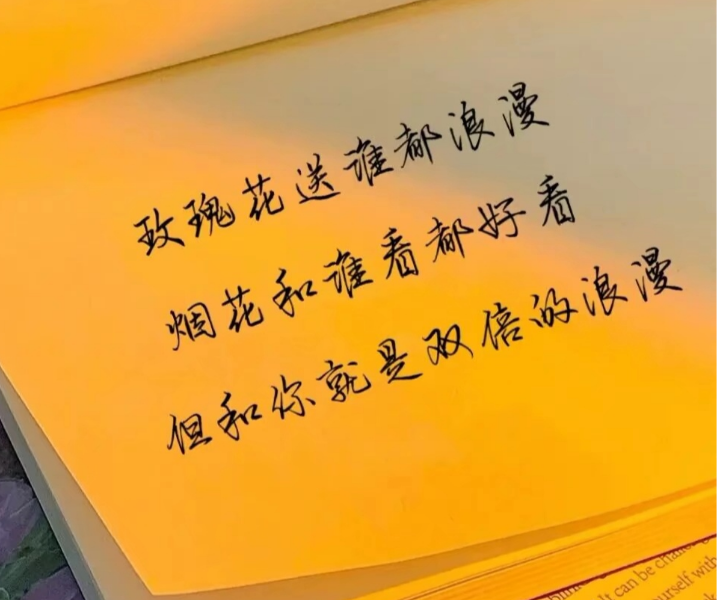 玫瑰花送谁都浪漫
烟花和谁看都好看
但和你就是双倍的浪漫
It can be
yourself with